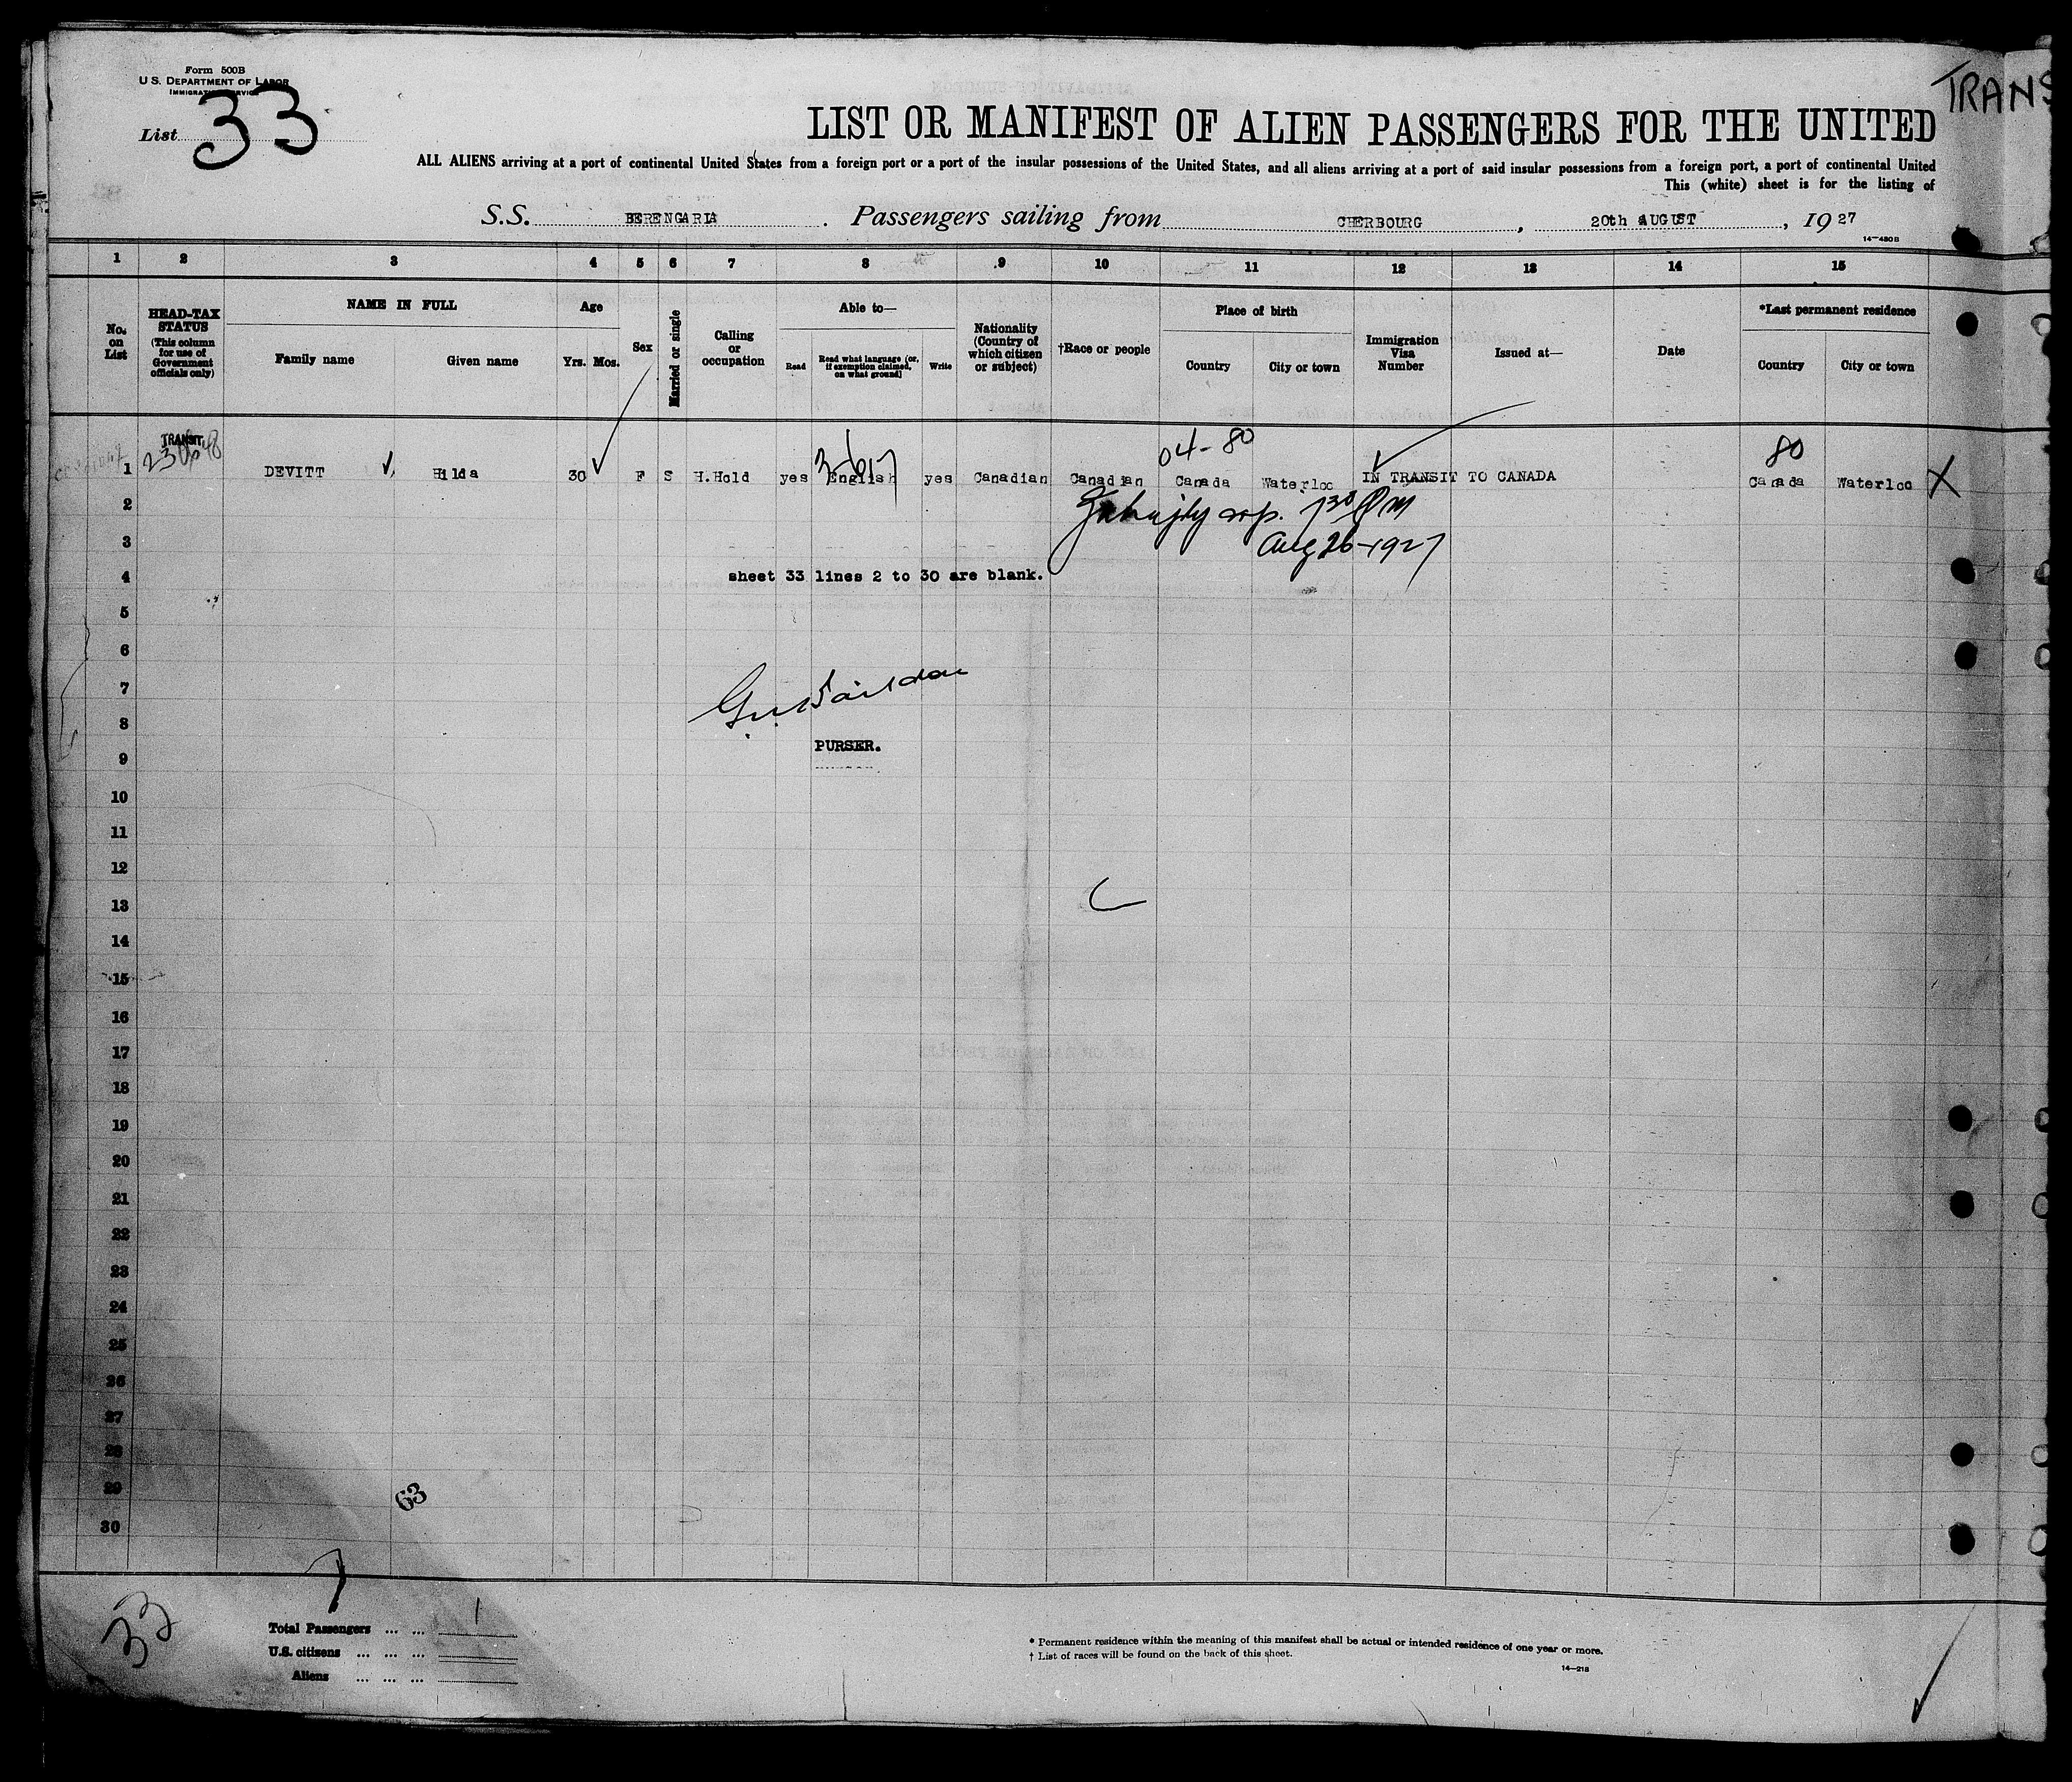 Form 500B
U. S. DEPARTMENT OF LABOR
IMMIGRATION SERVICE
List 33
TRANS
LIST OR MANIFEST OF ALIEN PASSENGERS FOR THE UNITED
ALL ALIENS arriving at a port of continental United States from a foreign port or a port of the insular possessions of the United States, and all aliens arriving at a port of said insular possessions from a foreign port, a port of continental United
This (white) sheet is for the listing of
S.S. BERENGARIA. Passengers sailing from CHERBOURG, 20th AUGUST, 1927
14—480B
1 2 3 4 5 6 7 8 9 10 11 12 13 14 15
No. on List
HEAD-TAX STATUS (This column for use of Government officials only)
NAME IN FULL
Family name Given name
Age
Yrs. Mos.
Sex
Married or single
Calling or occupation
Able to—
Read
Read what language [or, if exemption claimed, on what ground]
Write
Nationality (Country of which citizen or subject)
†Race or people
Place of birth
Country City or town
Immigration Visa Number
Issued at—
Date
*Last permanent residence
Country City or town
TRANSIT
04-80 80
1 DEVITT Hilda 30 F S H.Hold yes English yes Canadian Canadian Canada Waterloo IN TRANSIT TO CANADA Canada Waterloo X
2
PM
3
Aug 26-1927
4 sheet 33 lines 2 to 30 are blank.
5
6
7
8
PURSER.
9
10
11
12
13
14
15
16
17
18
19
20
21
22
23
24
25
26
27
28
29
63
30
33
Total Passengers ... ... 1
U.S. citizens ... ... ...
Aliens ... ... ...
* Permanent residence within the meaning of this manifest shall be actual or intended residence of one year or more.
† List of races will be found on the back of this sheet.
14—218